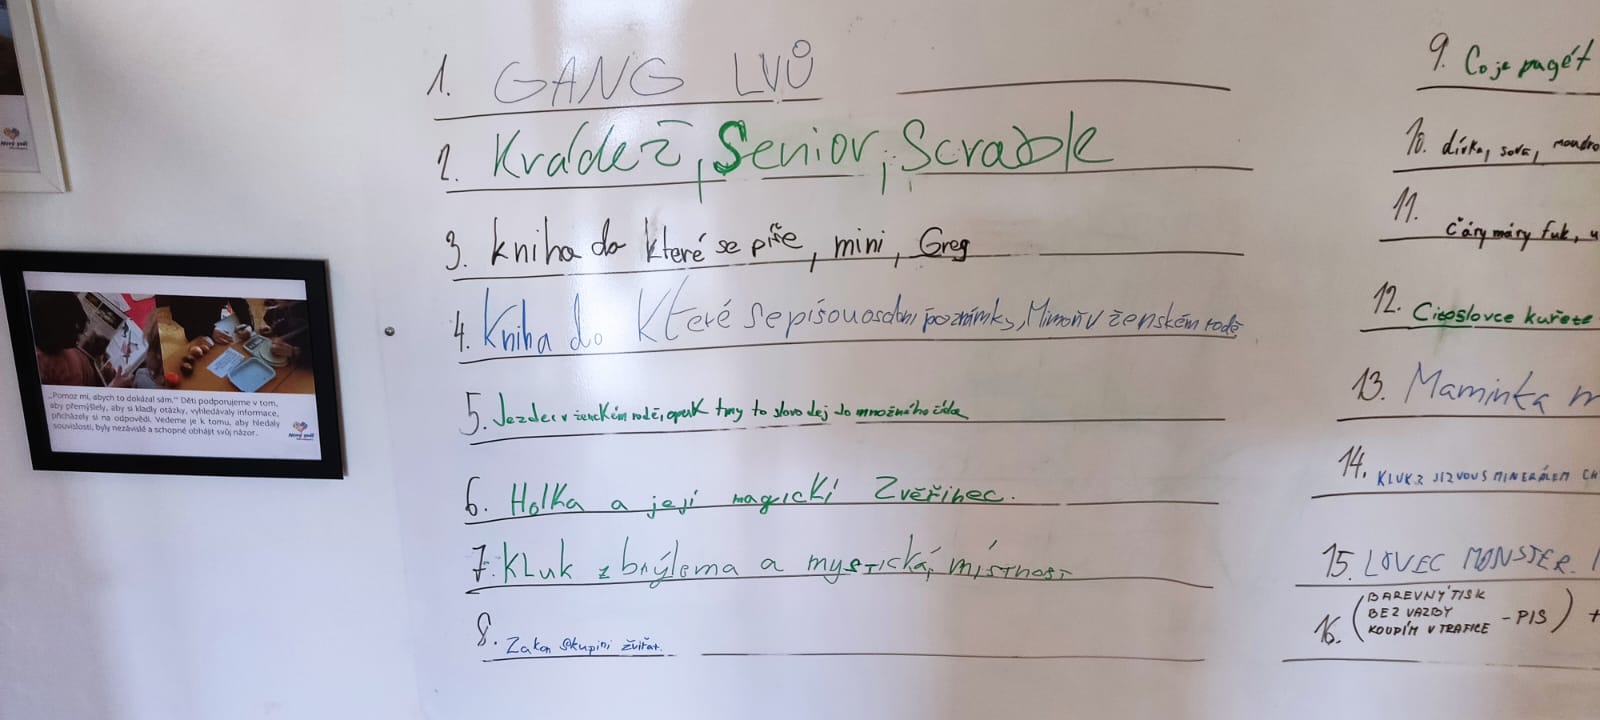 1. GANG LVŮ
2. Krádež, Senior, Scrable
3. kniha do které se píše, mini, Greg
4. Kniha do Které se píšou osobní poznámky, Mimoň v ženském rodě
5. Jezdec v ženckém rodě, opak tmy to slovo dej do množného čísla
6. Holka a její magickí Zvěřinec.
7. Kluk z brýlema a mystická místnost
8. Zakon skupini zviřat.
9. Co je pagét
10. dívka, sova, moudro
11. Čáry máry fuk, u
12. Citoslovce kuřete
13. Maminka m
14. KLUK Z JIZVOU S MINERÁLEM CH
15. LOVEC MONSTER.
16. (BAREVNÝ TISK
BEZ VAZBY - PIS) +
KOUPÍM V TRAFICE
„Pomoz mi, abych to dokázal sám." Děti podporujeme v tom,
aby přemýšlely, aby si kladly otázky, vyhledávaly informace,
přicházely si na odpovědi. Vedeme je k tomu, aby hledaly
souvislosti, byly nezávislé a schopné obhájit svůj názor.
Nový svět
Nový svět